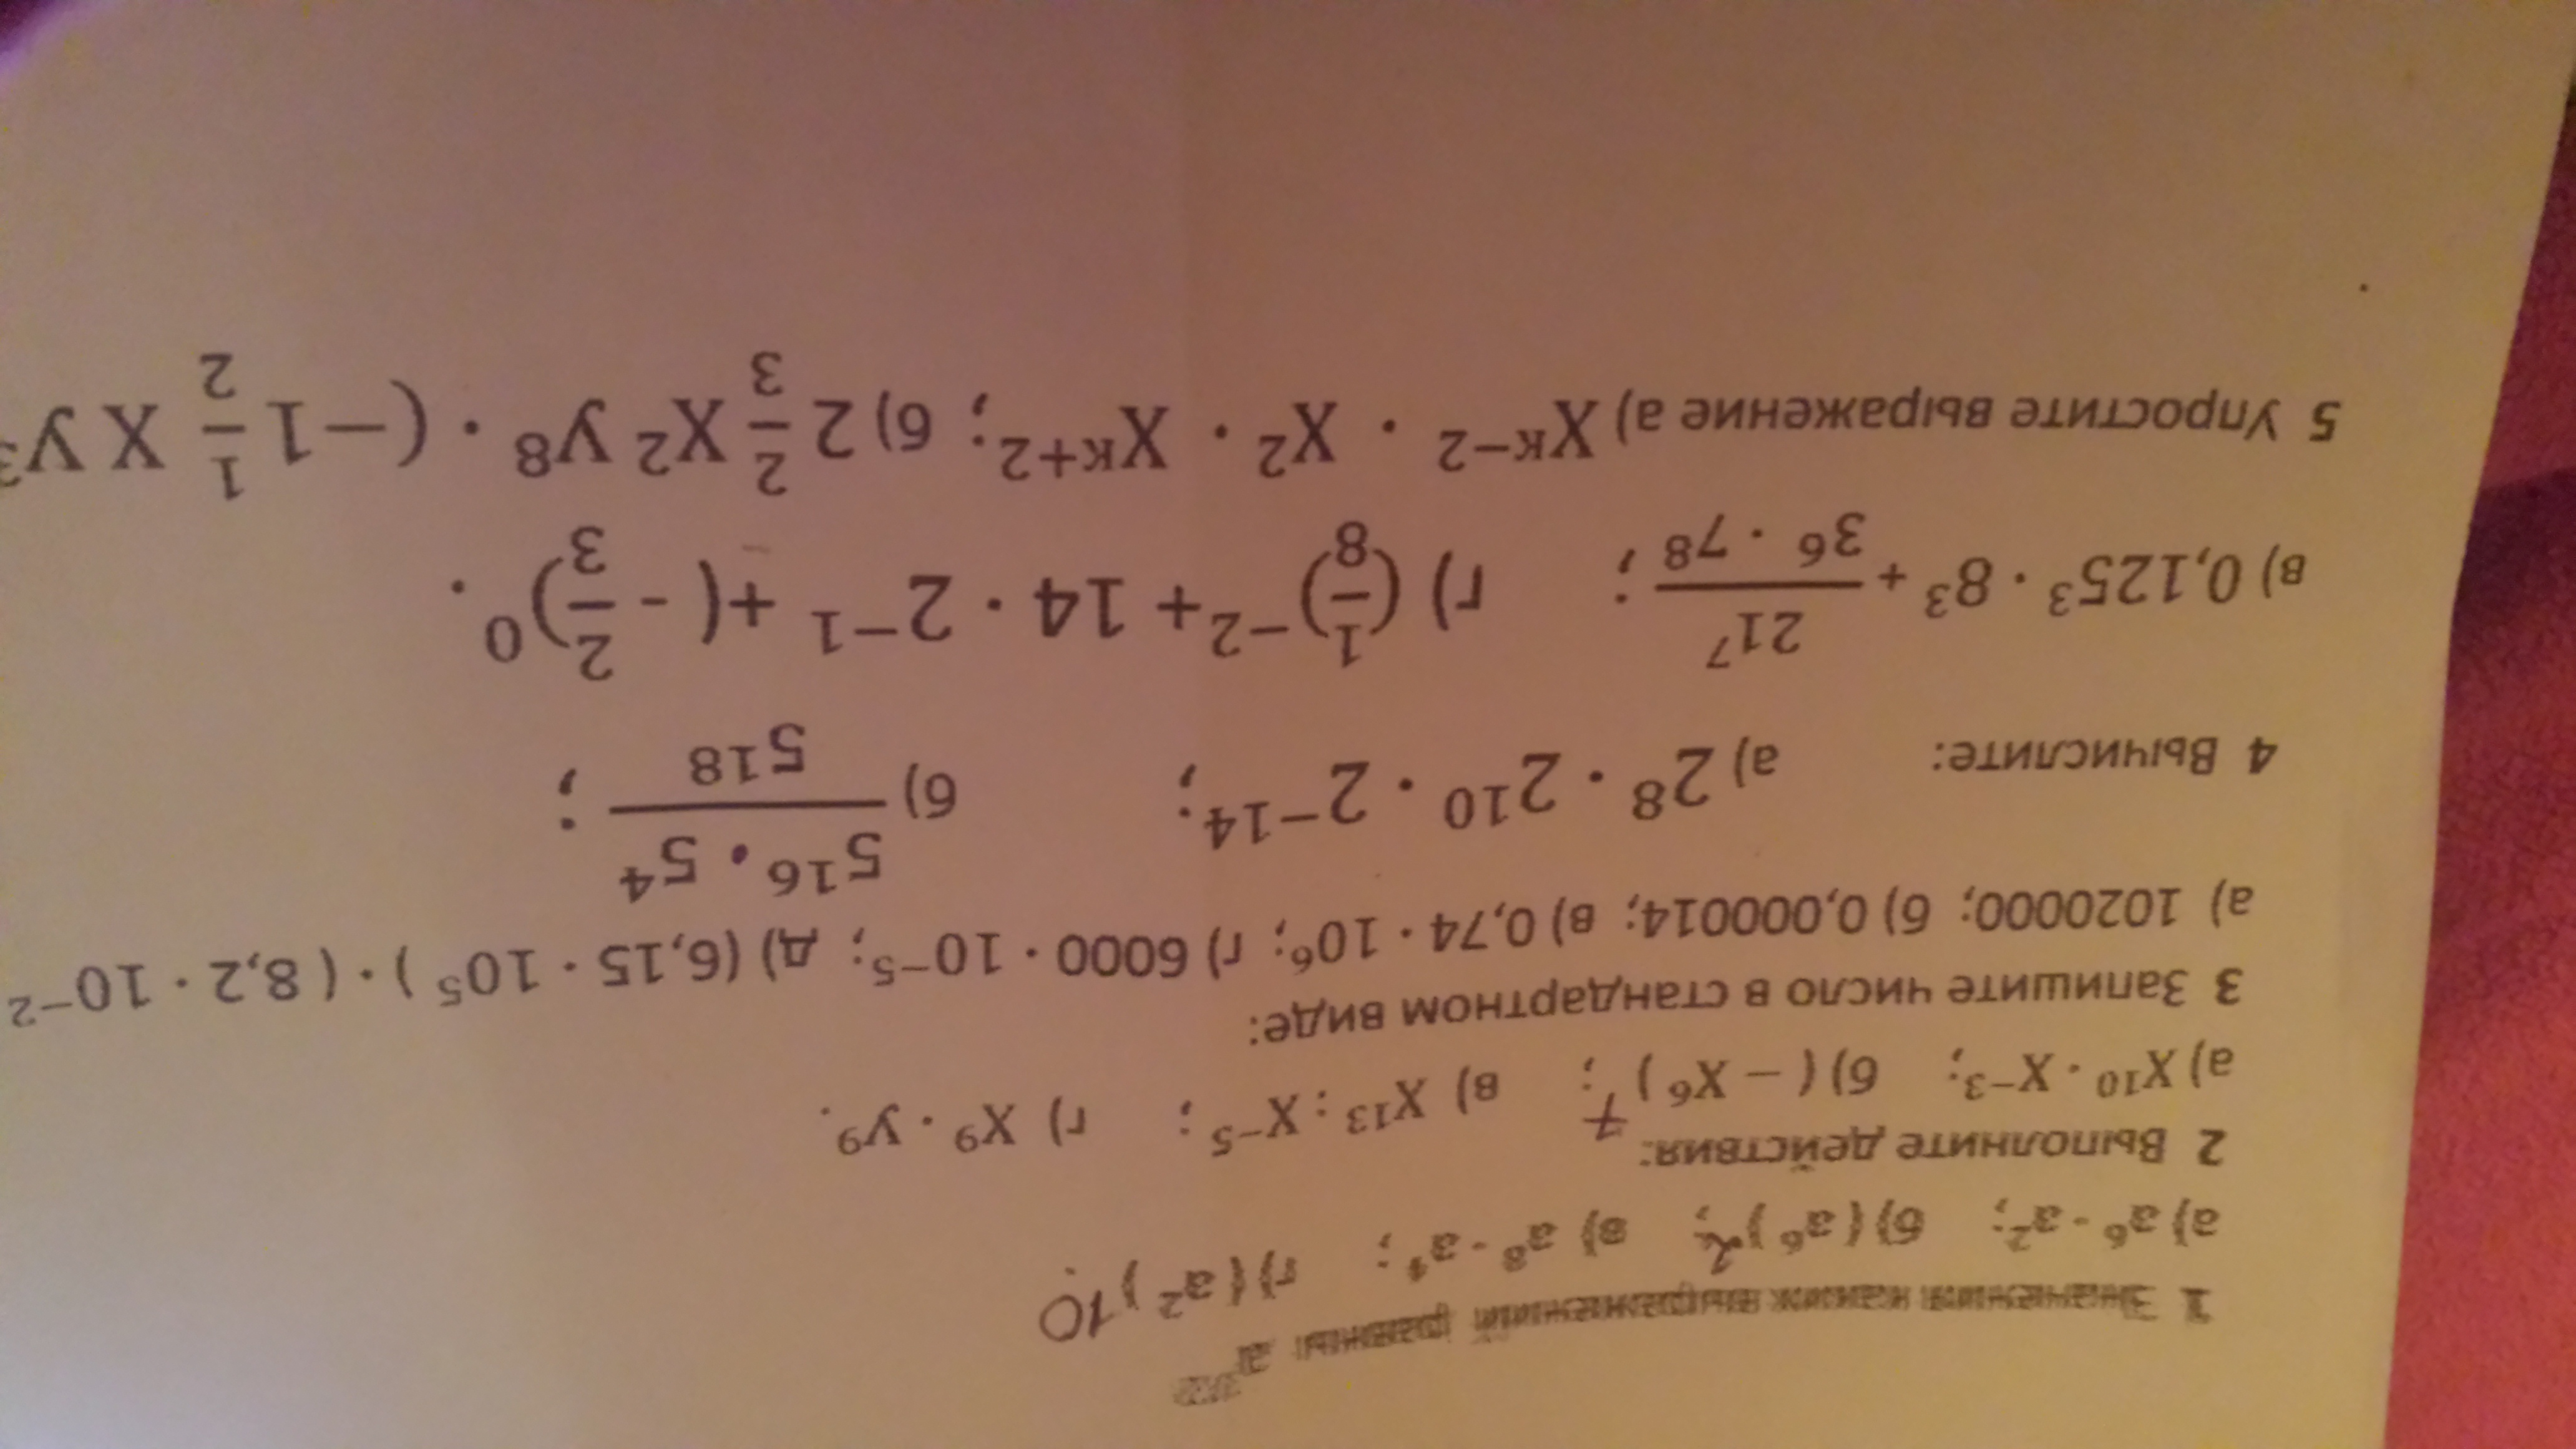 1 Значения каких выражений равны a
а) a⁶ · a²; б) (a⁶)²; в) a⁸ · a⁴; г) (a²)¹⁰.
2 Выполните действия:
а) X¹⁰ · X⁻³; б) (– X⁶)⁷; в) X¹³ : X⁻⁵; г) X⁹ · y⁹.
3 Запишите число в стандартном виде:
а) 10200000; б) 0,000014; в) 0,74 · 10⁶; г) 6000 · 10⁻⁵; д) (6,15 · 10⁵) · (8,2 · 10⁻²
4 Вычислите: а) 2⁸ · 2¹⁰ · 2⁻¹⁴; б) 5¹⁶ · 5⁴ / 5¹⁸ ;
в) 0,125³ · 8³ + 21⁷ / 3⁶ · 7⁸ ; г) (1/8)⁻² + 14 · 2⁻¹ + (- 2/3)⁰.
5 Упростите выражение а) Xᴷ⁻² · X² · Xᴷ⁺²; б) 2 2/3 X² y⁸ · (–1 1/2 X y³